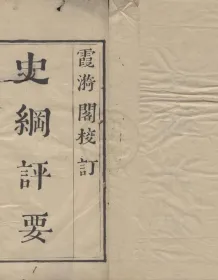 霞漪閣校訂
史綱評要